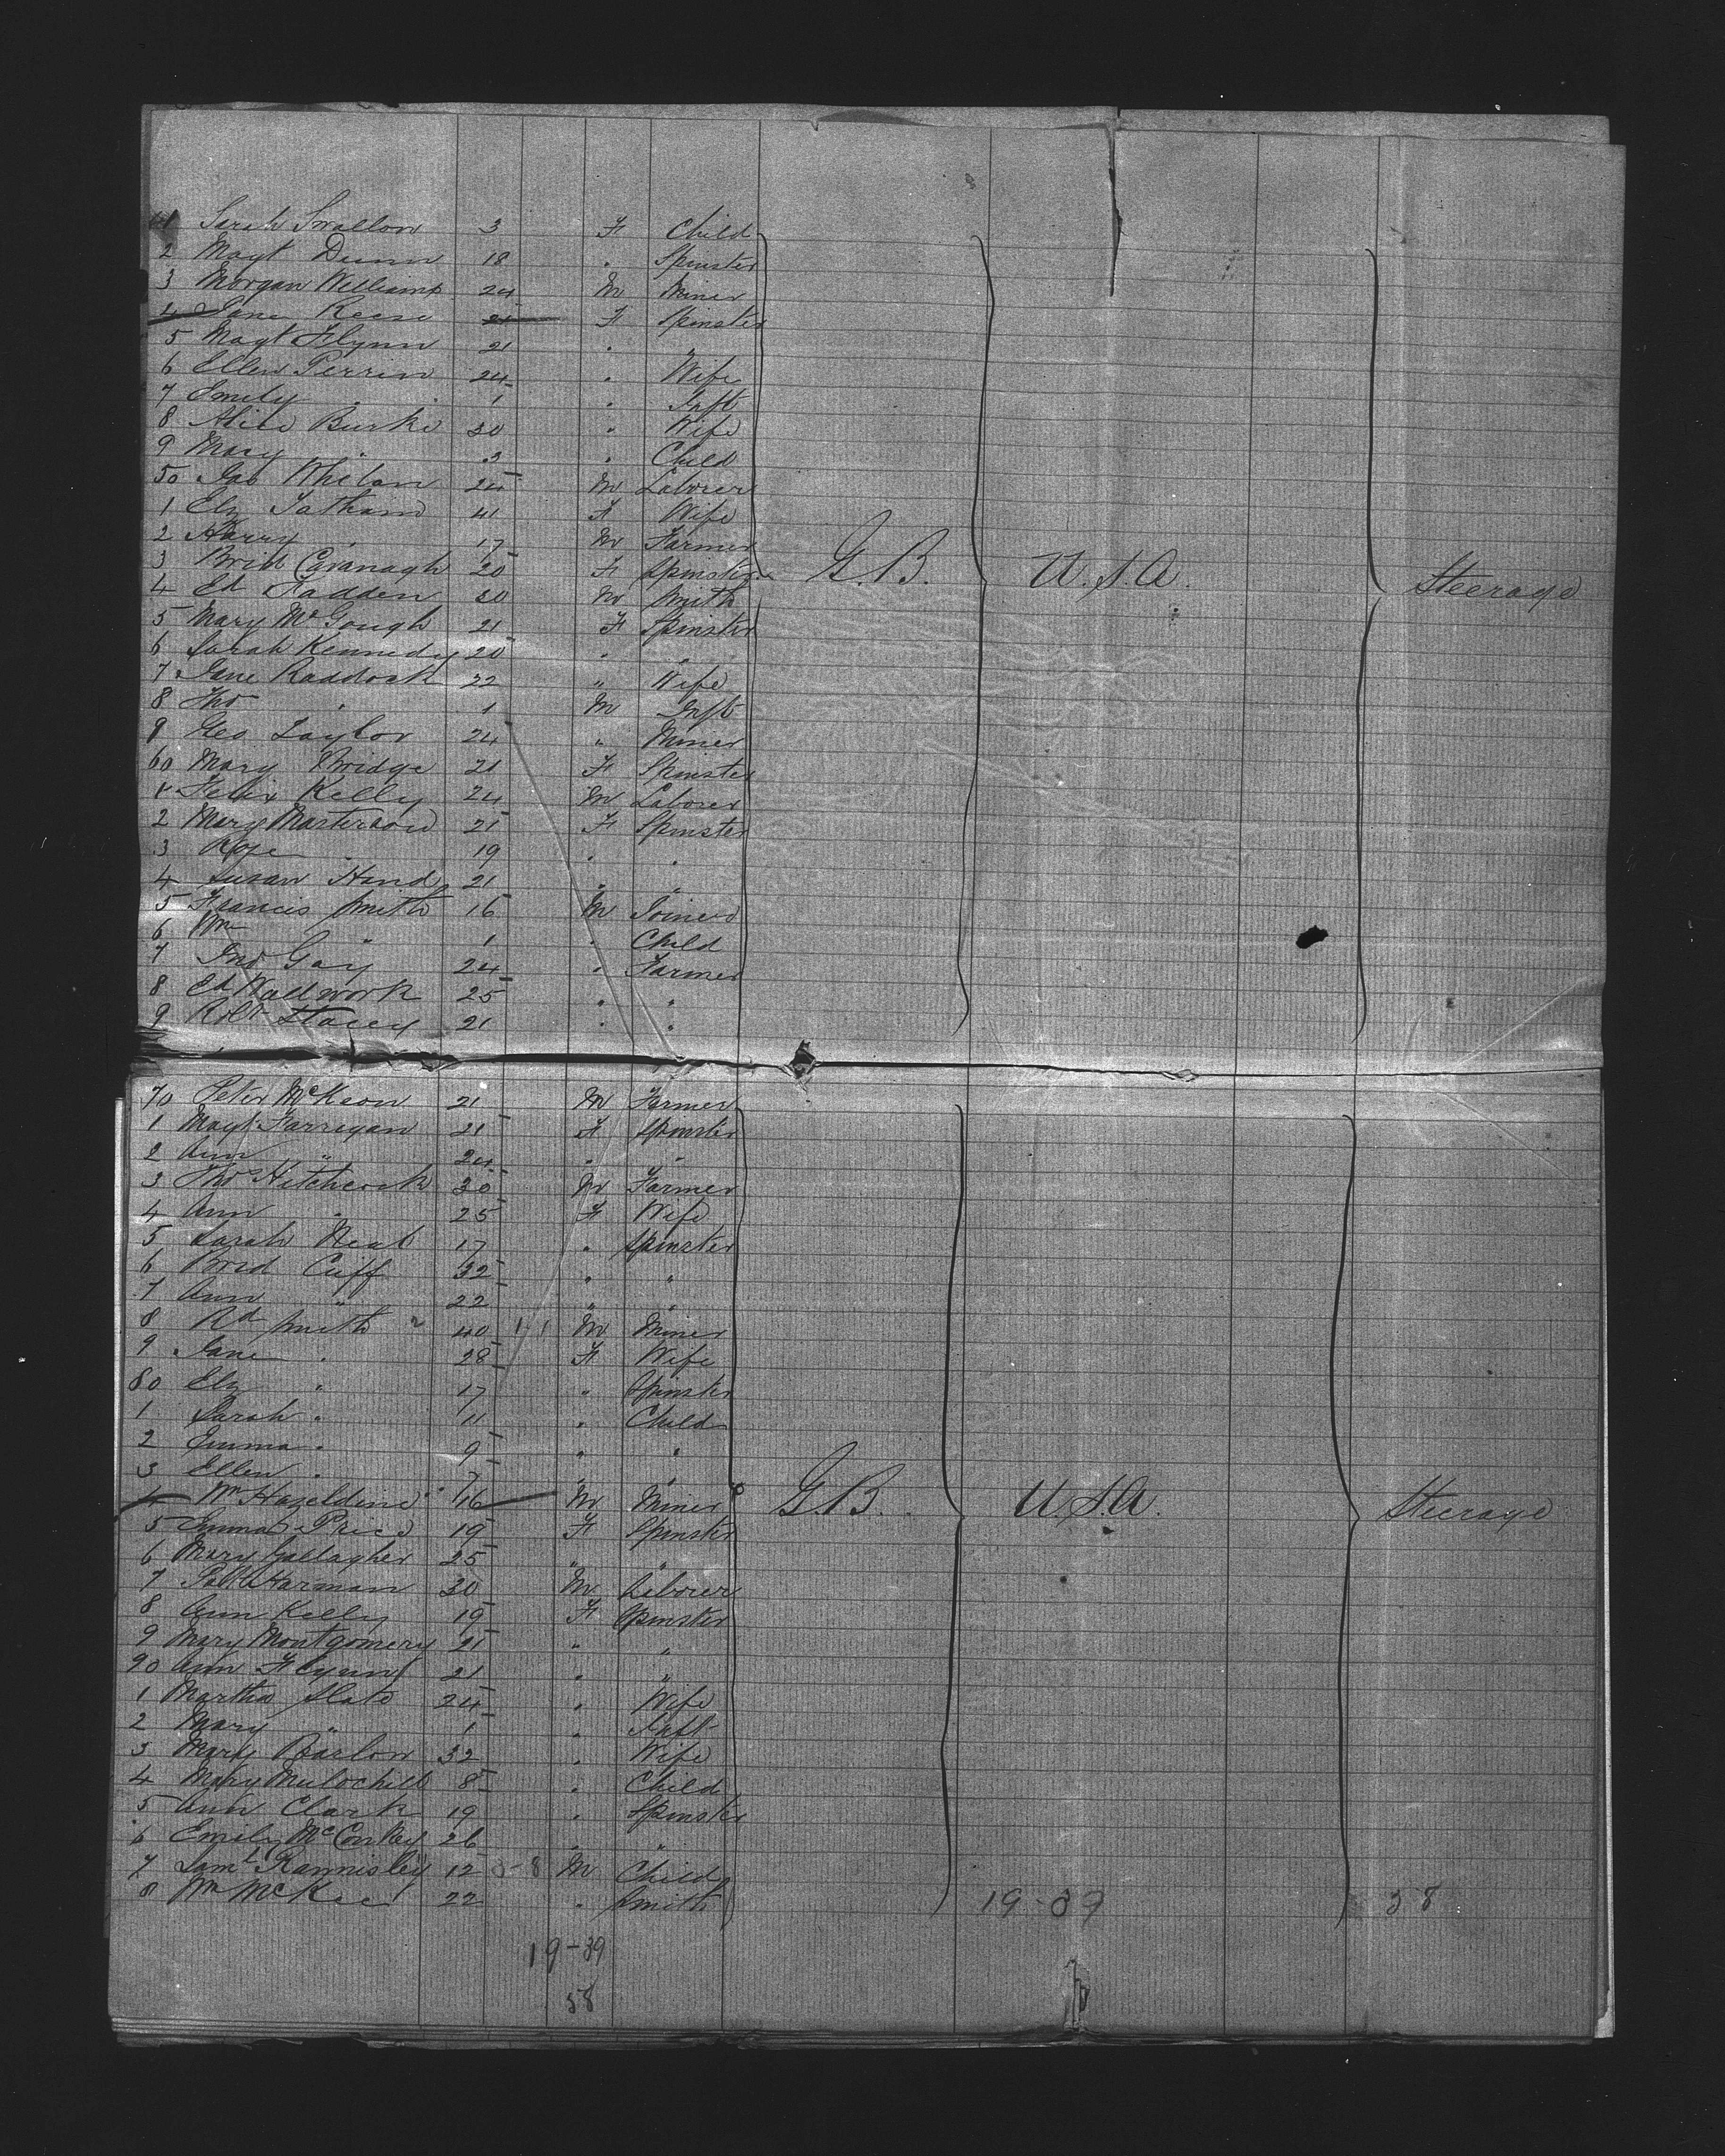 41 Sarah Swallow 3 F Child
2 Magt Dunn 18 . Spinster
3 Morgan Williams 24 M Miner
4 Jane Reese 21 F Spinster
5 Magt Flynn 21 . "
6 Ellen Perrin 24 . Wife
7 Emily . 1 . Inft
8 Alice Burke 30 " Wife
9 Mary . 3 . Child
50 Jas Whelan 24 M Laborer
1 Elz Tatham 41 F Wife
2 Harry . 17 M Farmer
3 Brid Cavanagh 20 F Spinster G.B. U.S.A. Steerage
4 Ed Fadden 20 M Smith
5 Mary McGough 21 F Spinster
6 Sarah Kennedy 20 . "
7 Jane Raddock 22 " Wife
8 Tho . 1 M Inft
9 Geo Taylor 24 " Miner
60 Mary Bridge 21 F Spinster
1 Felix Kelly 24 M Laborer
2 Mary Masterson 21 F Spinster
3 Rose . 19 . .
4 Susan Hand 21 . .
5 Francis Smith 16 M Joiner
6 Wm " 1 . Child
7 Jno Gay 24 . Farmer
8 Ed Wallwork 25 . "
9 Robt Stacey 21 . .
70 Peter McKeon 21 M Farmer
1 Magt Farrigan 21 F Spinster
2 Ann " 24 . .
3 Tho Hitchcock 30 M Farmer
4 Ann . 25 F Wife
5 Sarah 17 . Spinster
6 Brid Cuff 32 " "
7 Ann " 22 " .
8 Rd Smith 40 1 1 M Miner
9 Jane . 28 F Wife
80 Elz " 17 " Spinster
1 Sarah . 11 . Child
2 Emma . 9 " "
3 Ellen . 7 " .
4 Wm Hazeldine 16 M Miner G.B. U.S.A. Steerage
5 Emma Price 19 F Spinster
6 Mary Gallagher 25 " "
7 Patk Harman 30 M Laborer
8 Ann Kelly 19 F Spinster
9 Mary Montgomery 21 " "
90 Ann Flynn 21 . "
1 Martha Slate 24 . Wife
2 Mary " 1 . Inft
3 Mary Barlow 32 . Wife
4 Mary 8 . Child
5 Ann Clark 19 . Spinster
6 Emily McConkey 26 . "
7 Saml 12 M Child
8 Wm McKee 22 . Smith 19-39 58
19-39
58